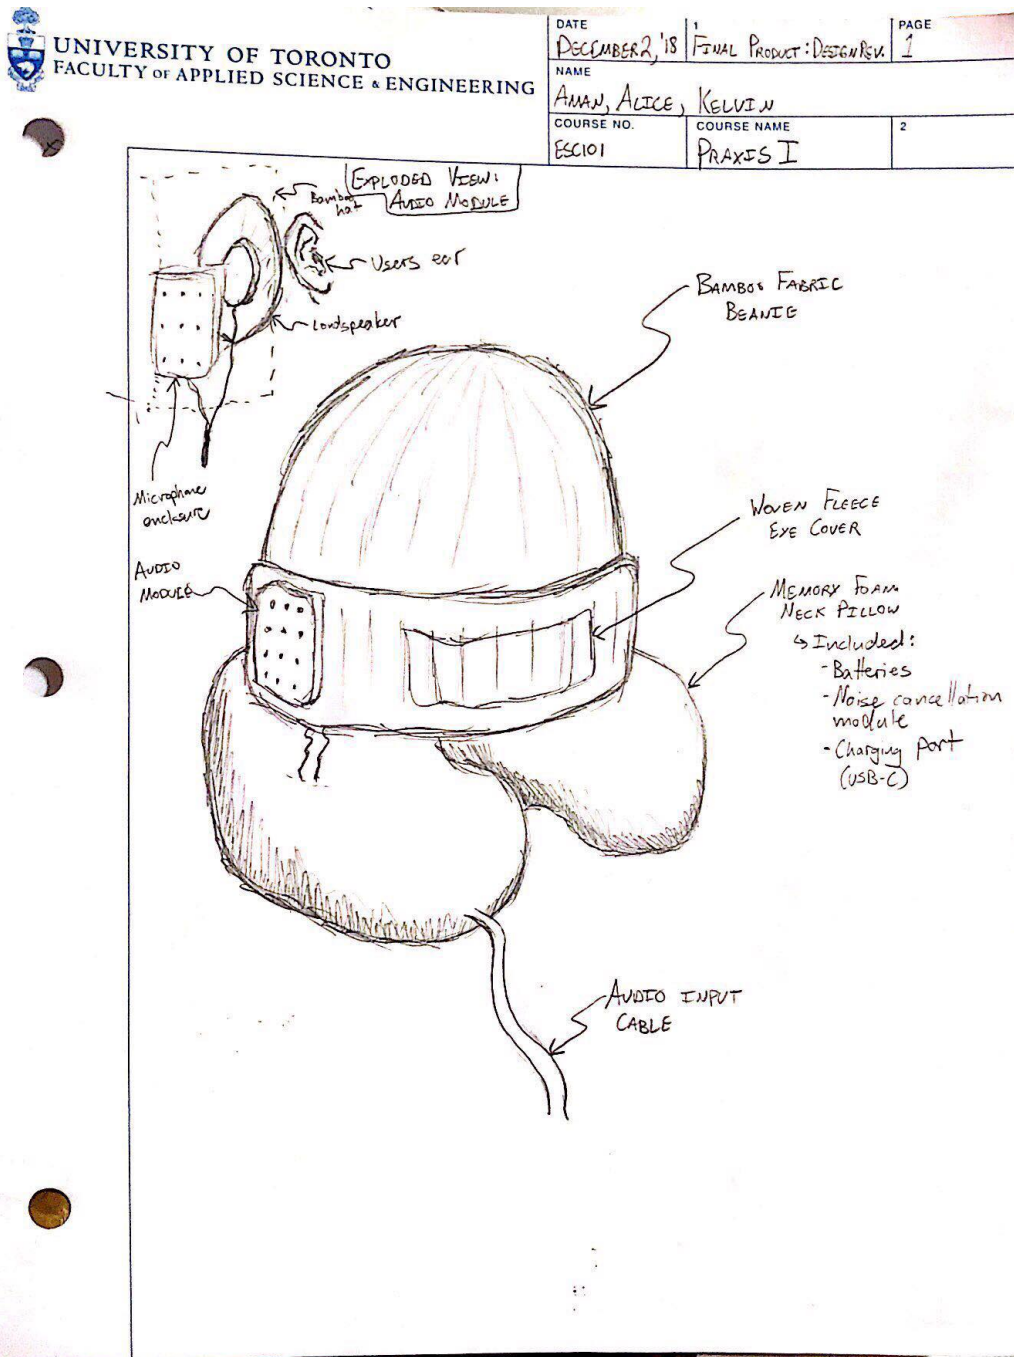 UNIVERSITY OF TORONTO
FACULTY OF APPLIED SCIENCE & ENGINEERING
DATE
DECEMBER 2, '18
1
FINAL PRODUCT: DESIGN REV.
PAGE
1
NAME
AMAN, ALICE, KELVIN
COURSE NO.
ESC101
COURSE NAME
PRAXIS I
2
EXPLODED VIEW:
AUDIO MODULE
Bamboo
hat
Users ear
Loudspeaker
Microphone
enclosure
AUDIO
MODULE
BAMBOO FABRIC
BEANIE
WOVEN FLEECE
EYE COVER
MEMORY FOAM
NECK PILLOW
↳ Included:
- Batteries
- Noise cancellation
module
- Charging port
(USB-C)
AUDIO INPUT
CABLE